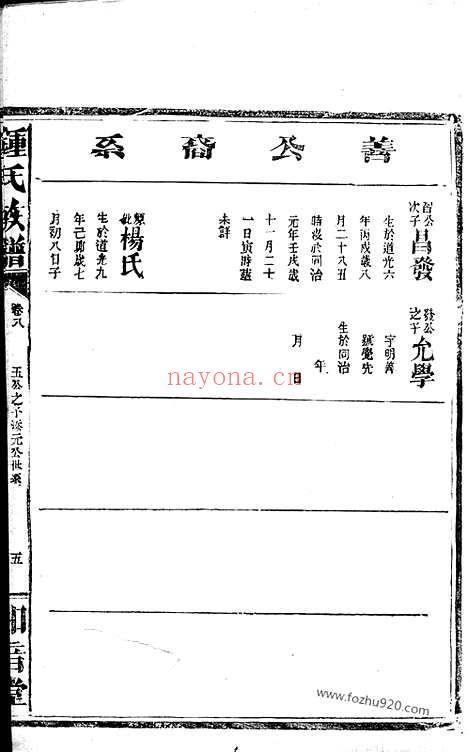 善公裔系
公次子昌發
生於道光六
年丙戌歲八
月二十八丑
時沒於同治
元年壬戌歲
十一月二十
一日寅時塟
未詳
楊氏
生於道光九
年己卯歲七
月初八日子
發公之子允學
字明善
號覺先
生於同治
年
月 日
鍾氏族譜
卷八
五
知音堂
nayona.cn
www.fozhu920.com